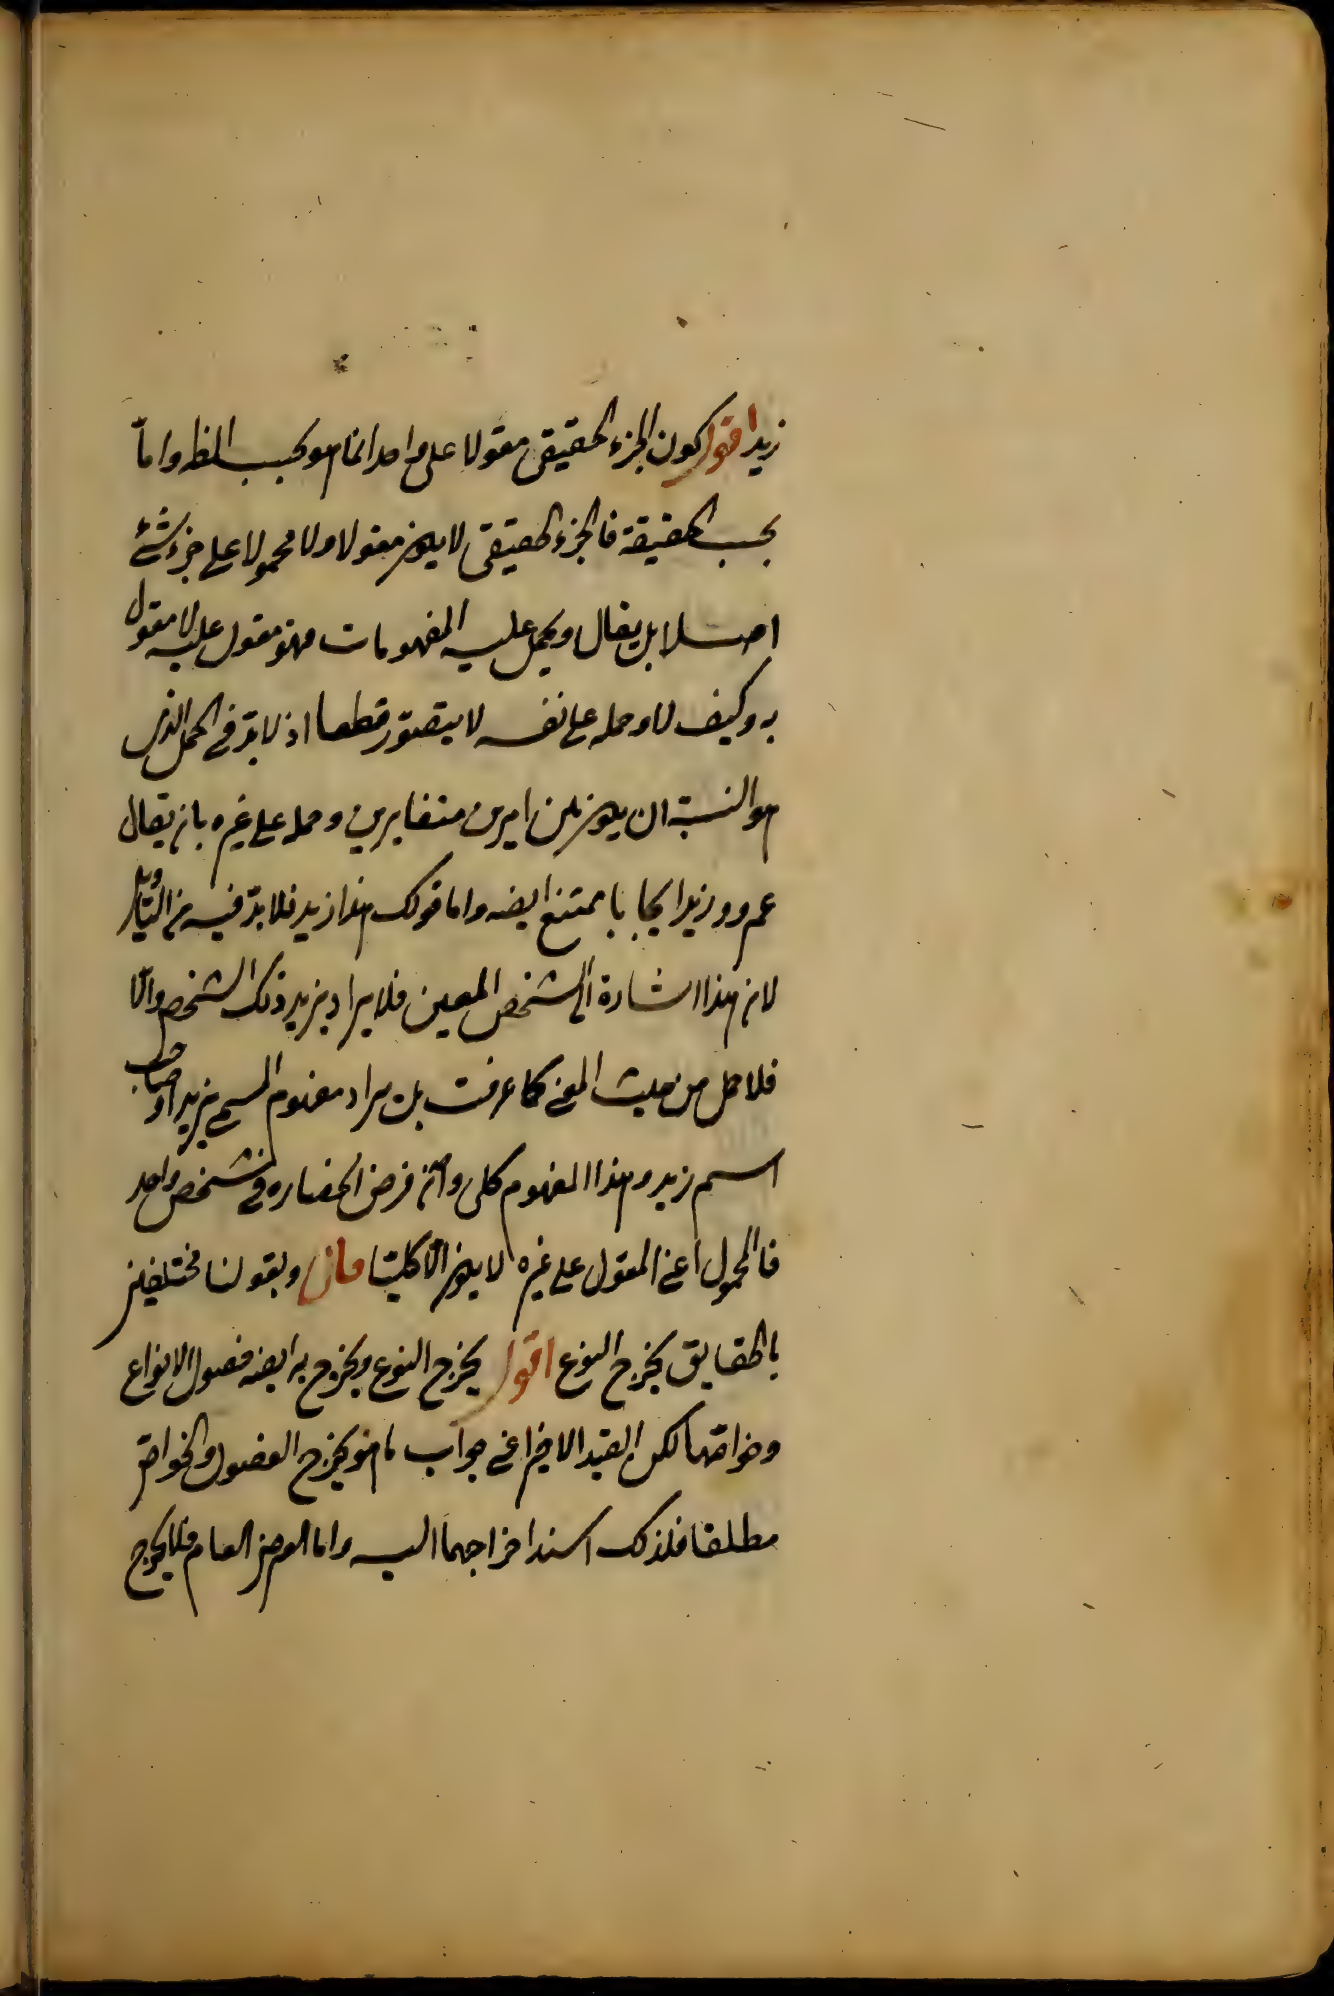 زيد اقول كون الجزء الحقيقى مقولا على واحد انما هو بحسب الظ واما
بحسب الحقيقة فالجزء الحقيقى لا يكون مقولا ولا محمولا على جزء شئ
اصلا بل يقال ويحمل عليه المفهومات فهو مقول عليه لا مقول
به وكيف لا وحمله على نفسه لا يتصور قطعا اذ لا بد فى الحمل الذى
هو النسبة ان يكون بين امرين متغايرين وحمله على غيره بان يقال
عمرو زيد ايجابا ممتنع ايضه واما قولك هذا زيد فلا بد فيه من التاويل
لان هذا اشارة الى الشخص المعين فلا يراد بزيد ذلك الشخص والا
فلا حمل من حيث المعنى كما عرفت بل يراد مفهوم المسمى بزيد او صاحب
اسم زيد وهذا المفهوم كلى وان فرض انحصاره فى شخص واحد
فالمحمول اعنى المقول على غيره لا يكون الا كليا قال وبقولنا مختلفين
بالحقايق يخرج النوع اقول يخرج النوع ويخرج به ايضه فصول الانواع
وخواصها لكن القيد الاخير اعنى جواب ما هو يخرج الفصول والخواص
مطلقا فلذلك اسند اخراجهما اليه واما العرض العام فلا يخرج